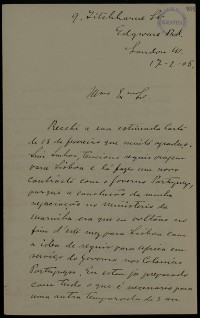 9, Titchborne St
Edgware Rd.
London W.
17-2-06.
Recebi a sua estimada carta
de 13 de fevereiro que muito agradeço.
Sim Senhor, tenciono seguir
para Lisboa e lá fazer um novo
contracto com o Governo Portuguez,
porque a conclusão da minha
no ministerio da
marinha era que eu voltasse no
fim d'este mez, para Lisboa com
a idea de seguir para Africa em
serviço do Governo nas Colonias
Portuguezas. Eu estou já preparado
com tudo o que é necessario para
uma outra temporada de 3 an